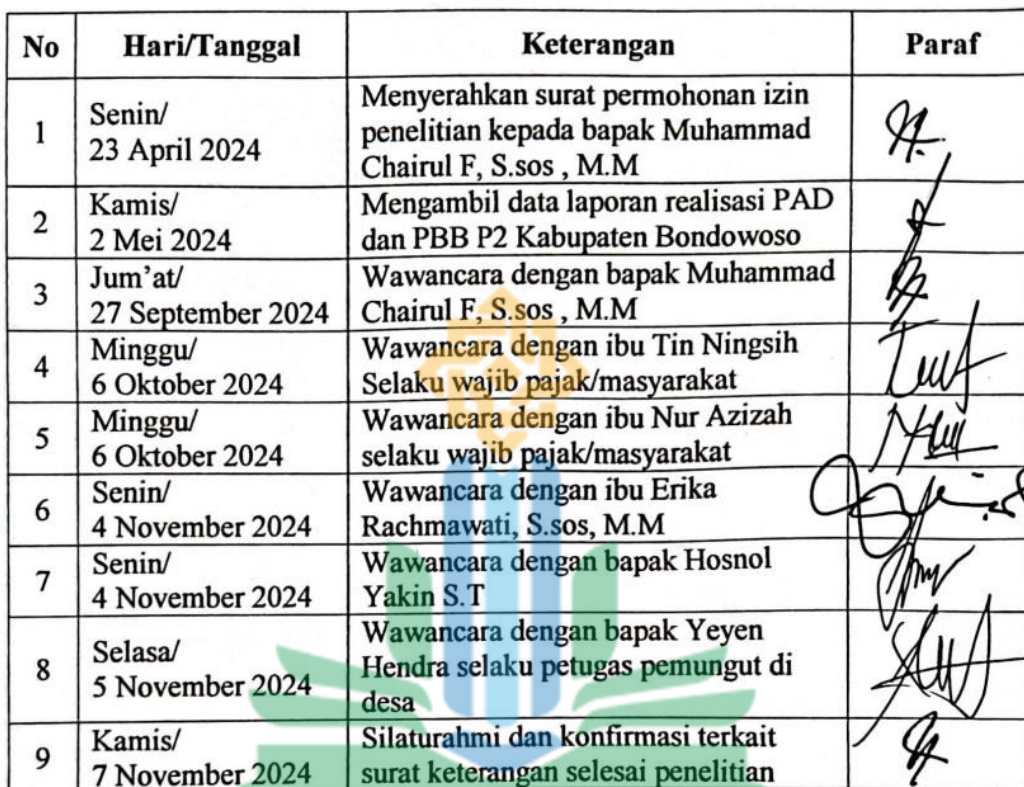 No Hari/Tanggal Keterangan Paraf
1 Senin/ 23 April 2024 Menyerahkan surat permohonan izin
penelitian kepada bapak Muhammad
Chairul F, S.sos , M.M
2 Kamis/ 2 Mei 2024 Mengambil data laporan realisasi PAD
dan PBB P2 Kabupaten Bondowoso
3 Jum'at/ 27 September 2024 Wawancara dengan bapak Muhammad
Chairul F, S.sos , M.M
4 Minggu/ 6 Oktober 2024 Wawancara dengan ibu Tin Ningsih
Selaku wajib pajak/masyarakat
5 Minggu/ 6 Oktober 2024 Wawancara dengan ibu Nur Azizah
selaku wajib pajak/masyarakat
6 Senin/ 4 November 2024 Wawancara dengan ibu Erika
Rachmawati, S.sos, M.M
7 Senin/ 4 November 2024 Wawancara dengan bapak Hosnol
Yakin S.T
8 Selasa/ 5 November 2024 Wawancara dengan bapak Yeyen
Hendra selaku petugas pemungut di
desa
9 Kamis/ 7 November 2024 Silaturahmi dan konfirmasi terkait
surat keterangan selesai penelitian